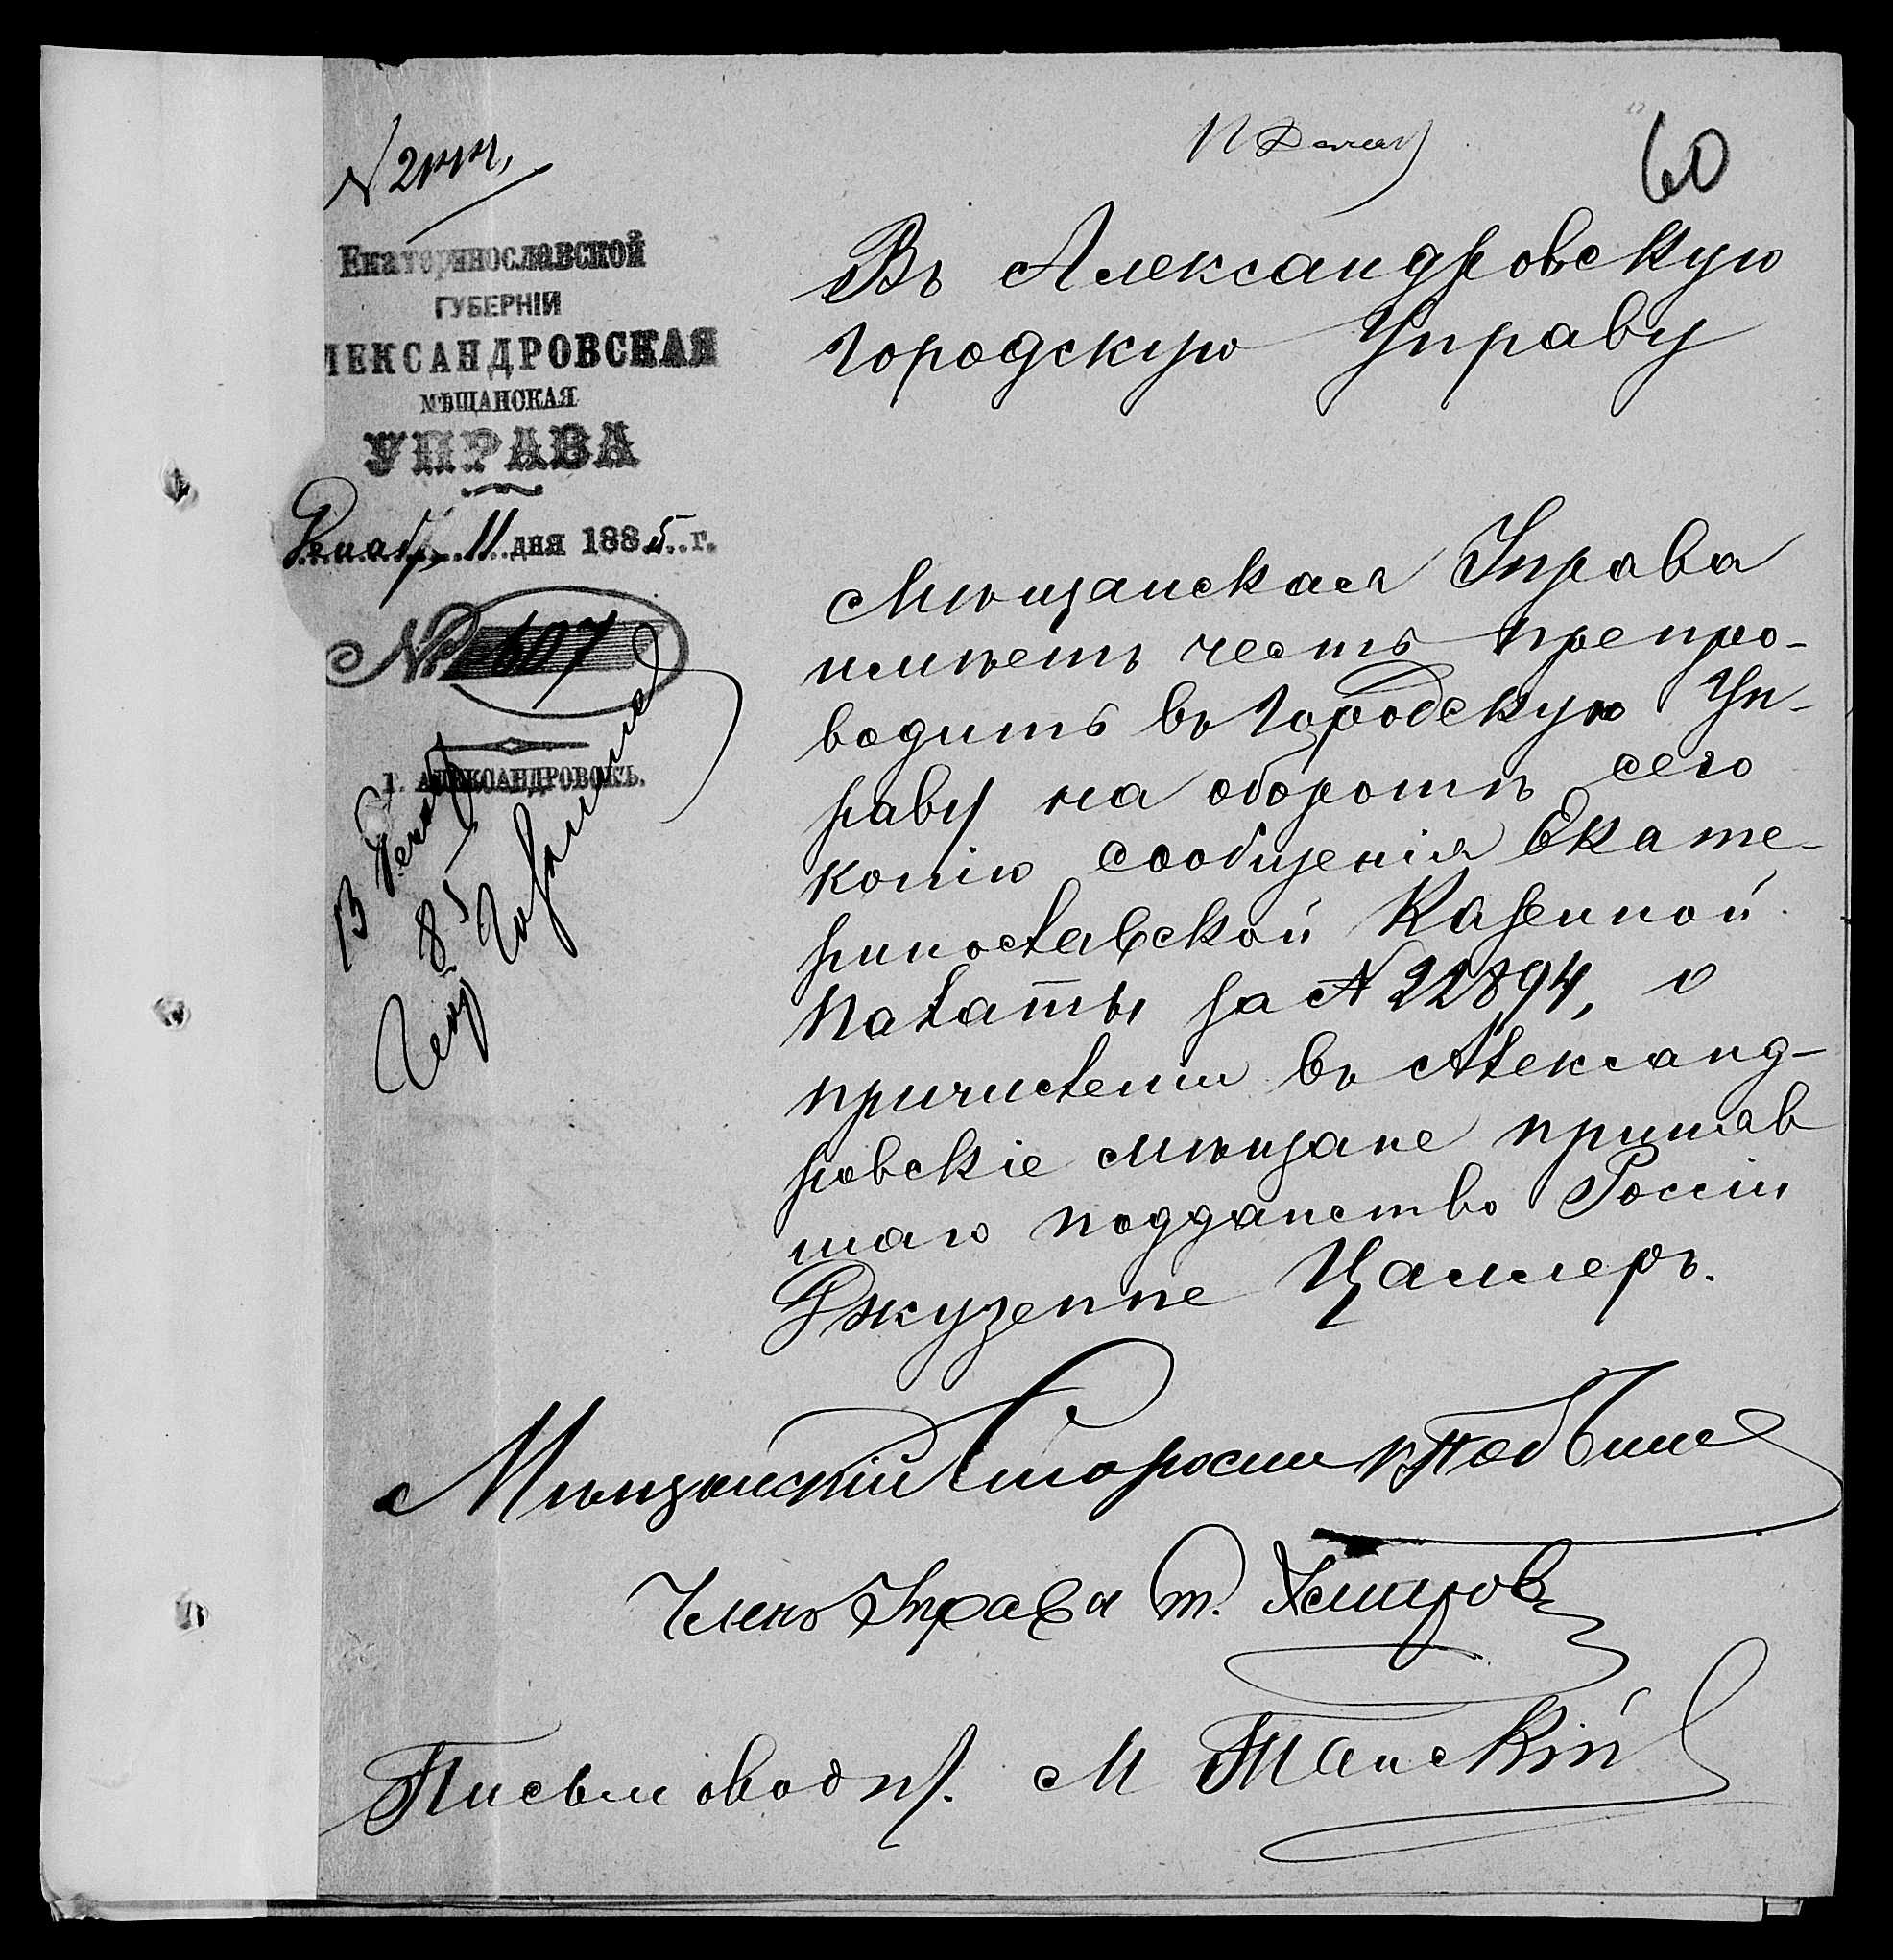 60
Екатеринославской
ГУБЕРНІИ
ЛЕКСАНДРОВСКАЯ
МѢЩАНСКАЯ
УПРАВА
Декабр 11 дня 1885 г.
№ 607
г. АЛЕКСАНДРОВСКЪ.
13 Декаб
85
Въ Александровскую
Городскую Управу
Мѣщанская Управа
имѣетъ честь препро-
водить въ Городскую Уп-
раву на оборотѣ сего
копію сообщенія Екате-
ринославской Казенной
Палаты за № 22894, о
причисленіи въ Александ-
ровскіе мѣщане принав
шаго подданство Россіи
Джузеппе Цаммеръ.
Мѣщанскій Староста
Членъ Управы
Письмовод М